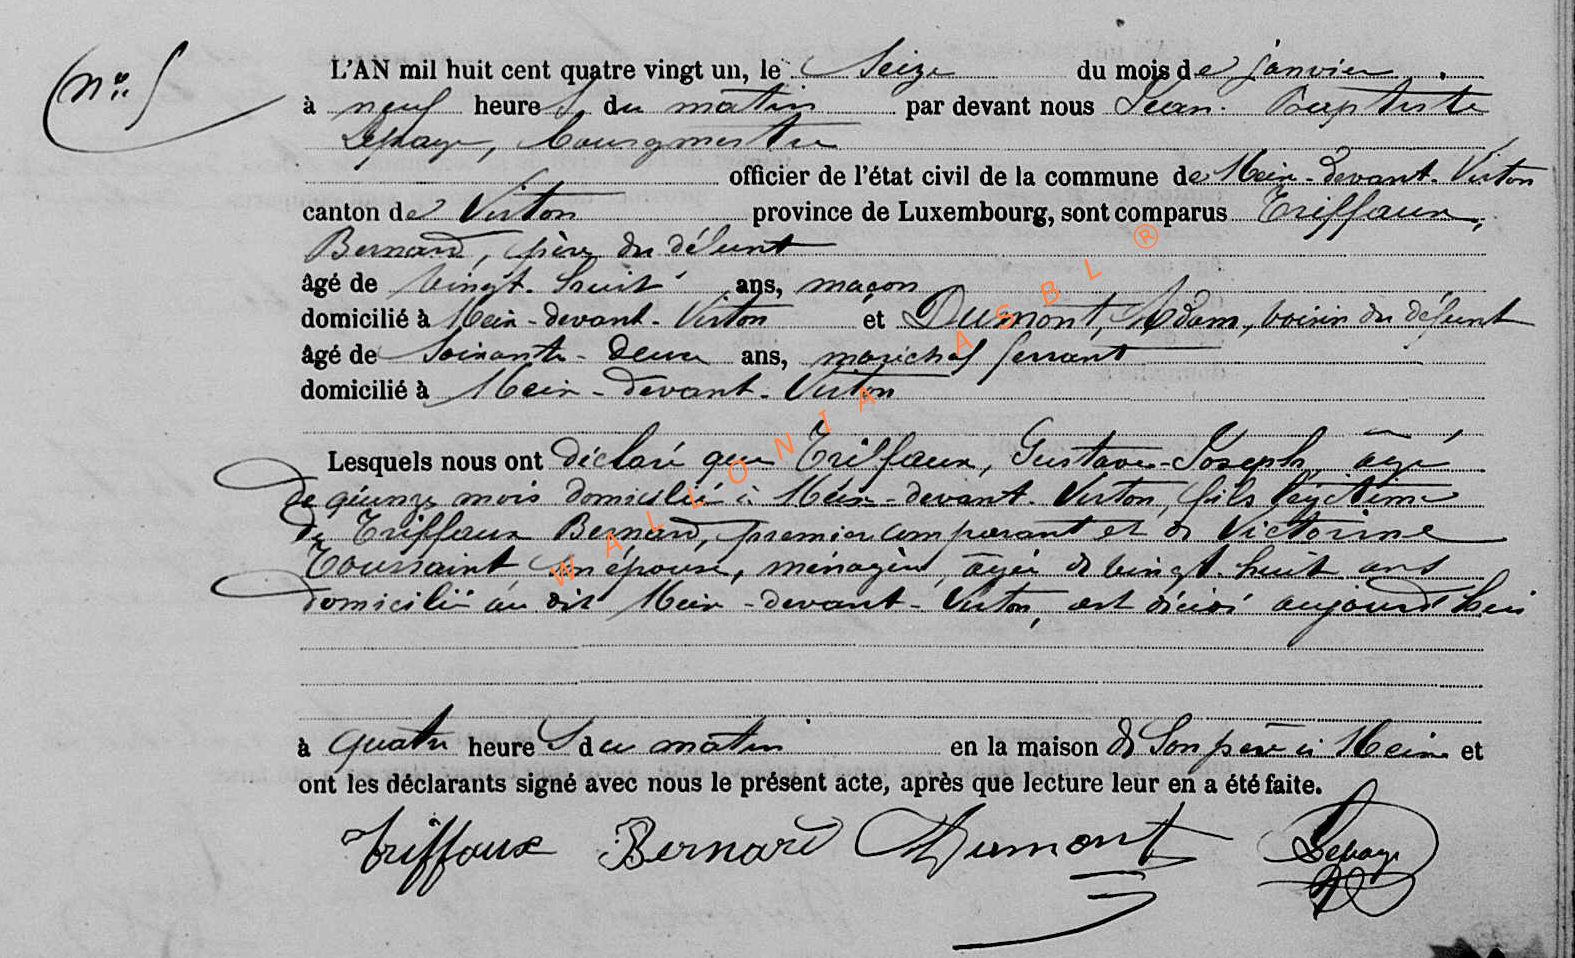 N° 5
L'AN mil huit cent quatre vingt un, le Seize du mois de janvier
à neuf heures du matin par devant nous Jean-Baptiste
Lepage, bourgmestre
officier de l'état civil de la commune de Meix-devant-Virton
canton de Virton province de Luxembourg, sont comparus Triffaux,
Bernard, père du défunt
âgé de vingt-huit ans, maçon
domicilié à Meix-devant-Virton et Dumont, Adam, voisin du défunt
âgé de soixante-deux ans, maréchal ferrant
domicilié à Meix-devant-Virton
Lesquels nous ont déclaré que Triffaux, Gustave-Joseph, âgé
de quinze mois domicilié à Meix-devant-Virton, fils légitime
de Triffaux Bernard, premier comparant et de Victorine
Toussaint son épouse, ménagère, âgée de vingt-huit ans
domicilié au dit Meix-devant-Virton, est décédé aujourd'hui
à quatre heures du matin en la maison de son père à Meix et
ont les déclarants signé avec nous le présent acte, après que lecture leur en a été faite.
Triffaux Bernard Dumont Lepage
WALLONIA ASBL ®